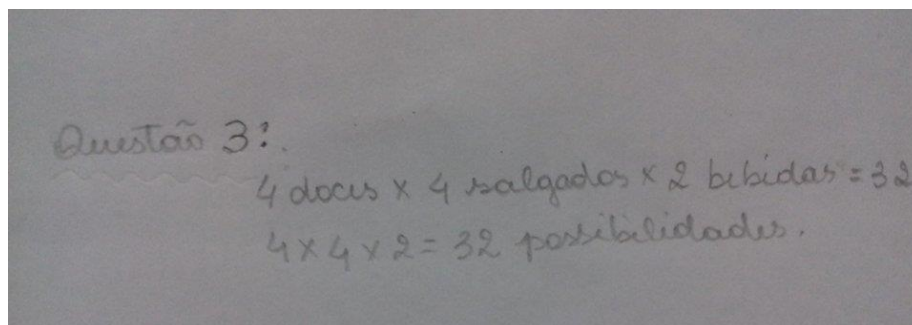 Questão 3:
4 doces x 4 salgados x 2 bebidas = 32
4 x 4 x 2 = 32 possibilidades.